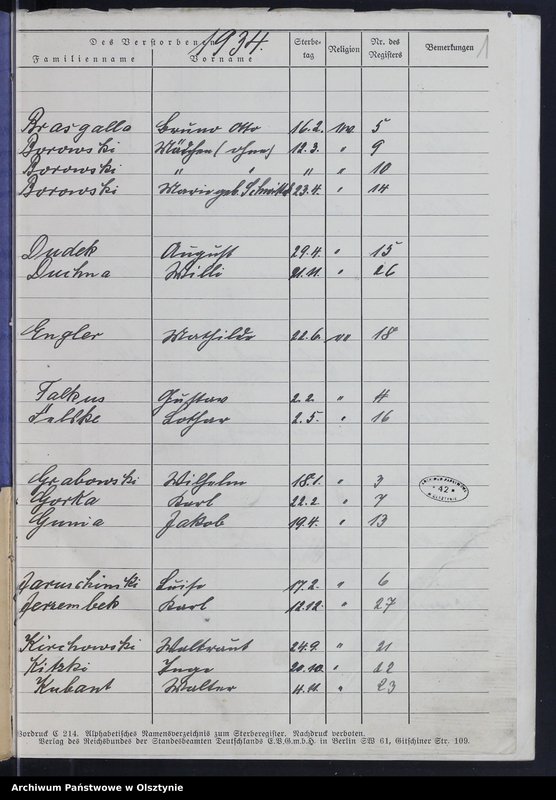 1934.
1
Des Verstorbenen
Familienname Vorname Sterbe-tag Religion Nr. des Registers Bemerkungen
Brasgalla Bruno Otto 16.2. ev 5
Borowski Mädchen (ohne) 12.3. " 9
Borowski " " " " 10
Borowski Marie geb. 23.4. " 14
Dudek August 29.4. " 15
Duchna Willi 21.11. " 26
Engler Mathilde 22.6. ev 18
Falkus Gustav 2.2. " 4
Felske Lothar 2.5. " 16
Grabowski Wilhelm 18.1. " 3
Gorka Karl 22.2. " 7
Gunia Jakob 19.4. " 13
Jaruschinski Luise 17.2. " 6
Jerzembek Karl 12.12. " 27
Kirchowski Waltraut 24.9. " 21
Kitzki Inge 20.10. " 22
Kubant Walter 4.11. " 23
ARCHIWUM PAŃSTWOWE
* 42 *
W OLSZTYNIE
Vordruck C 214. Alphabetisches Namensverzeichnis zum Sterberegister. Nachdruck verboten.
Verlag des Reichsbundes der Standesbeamten Deutschlands E.V.G.m.b.H. in Berlin SW 61, Gitschiner Str. 109.
Archiwum Państwowe w Olsztynie